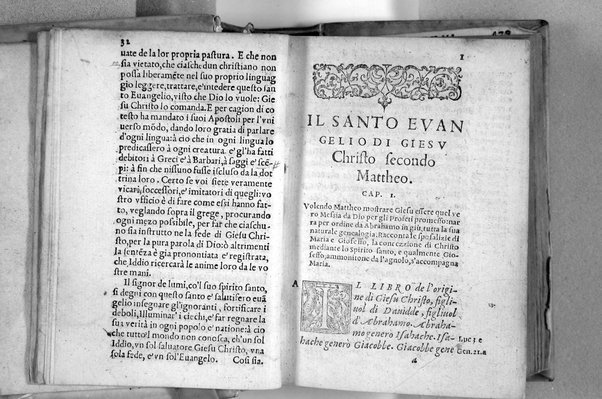 32
uate de la lor propria pastura. E che non
sia vietato, che ciasche dun christiano non
possa liberamẽte nel suo proprio linguag
gio leggere, trattare, e'ntedere questo san
to Euangelio, visto che Dio lo vuole: Gie
su Christo lo comanda. E per cagion di co
testo ha mandato i suoi Apostoli per l'vni
uerso mõdo, dando loro gratia di parlare
d'ogni lingua: à cio che in ogni lingua lo
predicassero à ogni creatura. e' gl'ha fatti
debitori à Greci e'à Barbari, à saggi e' scẽ-
pi: à fin che nissuno fusse iscluso da la dot
trina loro. Certo se voi siete veramente
vicarij, successori, e' imitatori di quegli: vo
stro vfficio è di fare come essi hanno fat-
to, veglando sopra il grege, procurando
ogni mezo possibile, per far che ciaschu-
no sia instrutto ne la fede di Giesu Chri-
sto, per la pura parola di Dio: à altrimenti
la sentẽza è gia pronontiata e' registrata,
che Iddio ricercarà le anime loro da le vo
stre mani.
Il signor de lumi, co'l suo spirito santo,
si degni con questo santo e' salutifero euã
gelio insegnare gl'ignoranti, fortificare i
deboli, illuminar' i ciechi, e' far regnare la
sua verità in ogni popolo e' natione: à cio
che tutto'l mondo non conosca, ch'vn sol
Iddio, vn sol saluatore Giesu Christo, vna
sola fede, e' vn sol'Euangelo. Cosi sia.
1
IL SANTO EVAN
GELIO DI GIESV
Christo secondo
Mattheo.
CAP. I.
Volendo Mattheo mostrare Giesu essere quel ve
ro Messia da Dio per gli Profeti promesso: nar
ra per ordine da Abrahamo in giu, tutta la sua
naturale genealogia. Racconta le sposalizie di
Maria e Gioseffo, la concezzione di Christo
mediante lo Spirito santo, e qualmente Gio-
seffo, ammonitone da l'agnolo, s'accompagna
Maria.
A
IL LIBRO de l'origi
ne di Giesu Christo, figliu
nol di Dauidde, figliuol
d'Abrahamo. Abraha-
mo generò Isahache. Isa- Luc 3 e
hache generò Giacobbe. Giacobbe gene Gen. 21.a
a